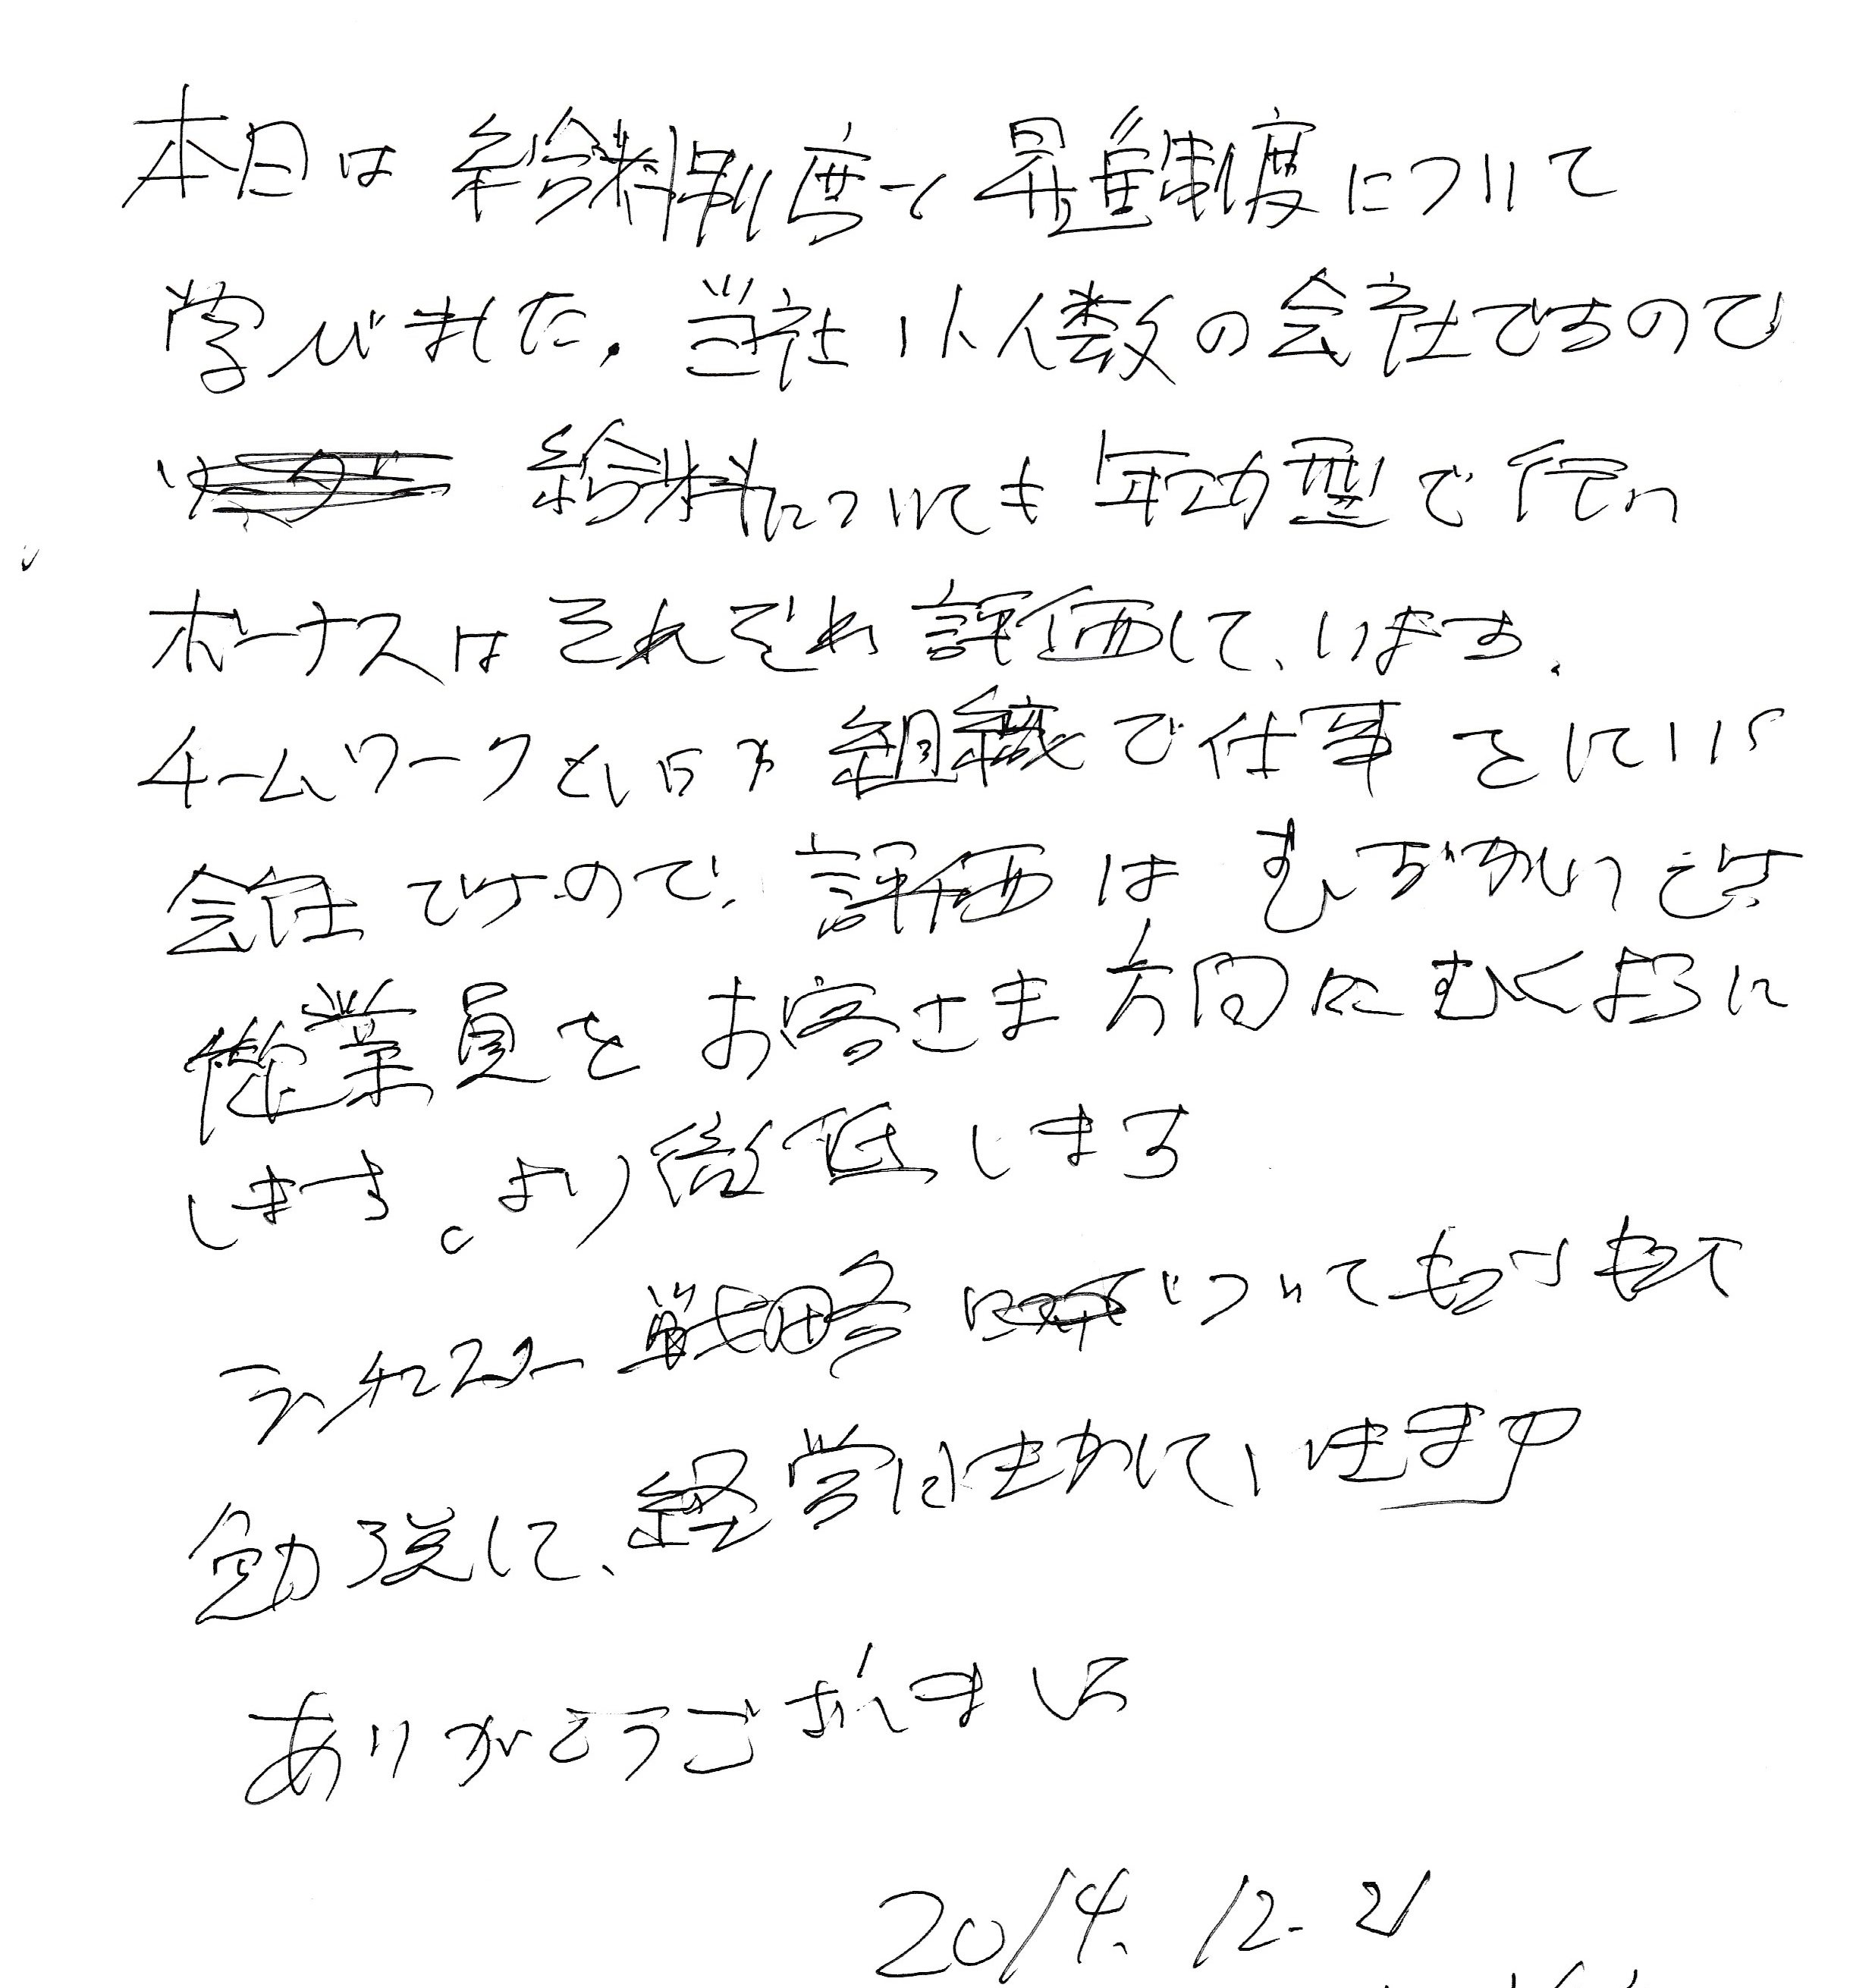 本日は給料制度と昇進制度について
学びました。当社小人数の会社ですので
給料についても年功型で行い
ボーナスはそれぞれ評価して、います。
チームワークというか組織で仕事をしている
会社ですので、評価はむずかしいです
従業員をお客さま方向にむくように
します。より徹底します
ランチェスター戦略についてもっともっと
勉強して、経営に生かしていきます
ありがとうございました
2014.12.21